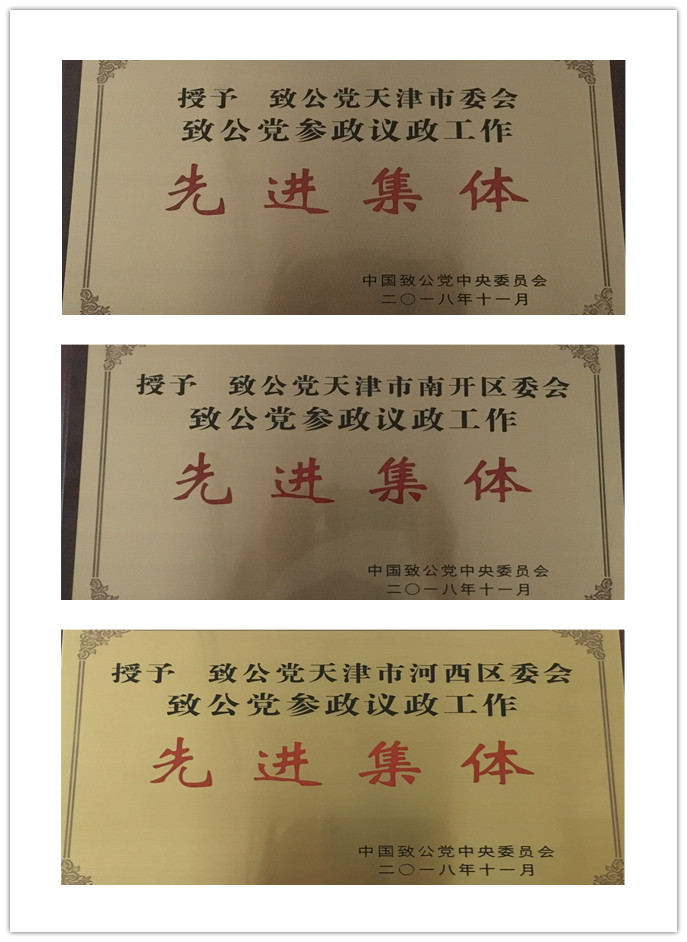 授予　致公党天津市委会
致公党参政议政工作
先进集体
中国致公党中央委员会
二〇一八年十一月
授予　致公党天津市南开区委会
致公党参政议政工作
先进集体
中国致公党中央委员会
二〇一八年十一月
授予　致公党天津市河西区委会
致公党参政议政工作
先进集体
中国致公党中央委员会
二〇一八年十一月